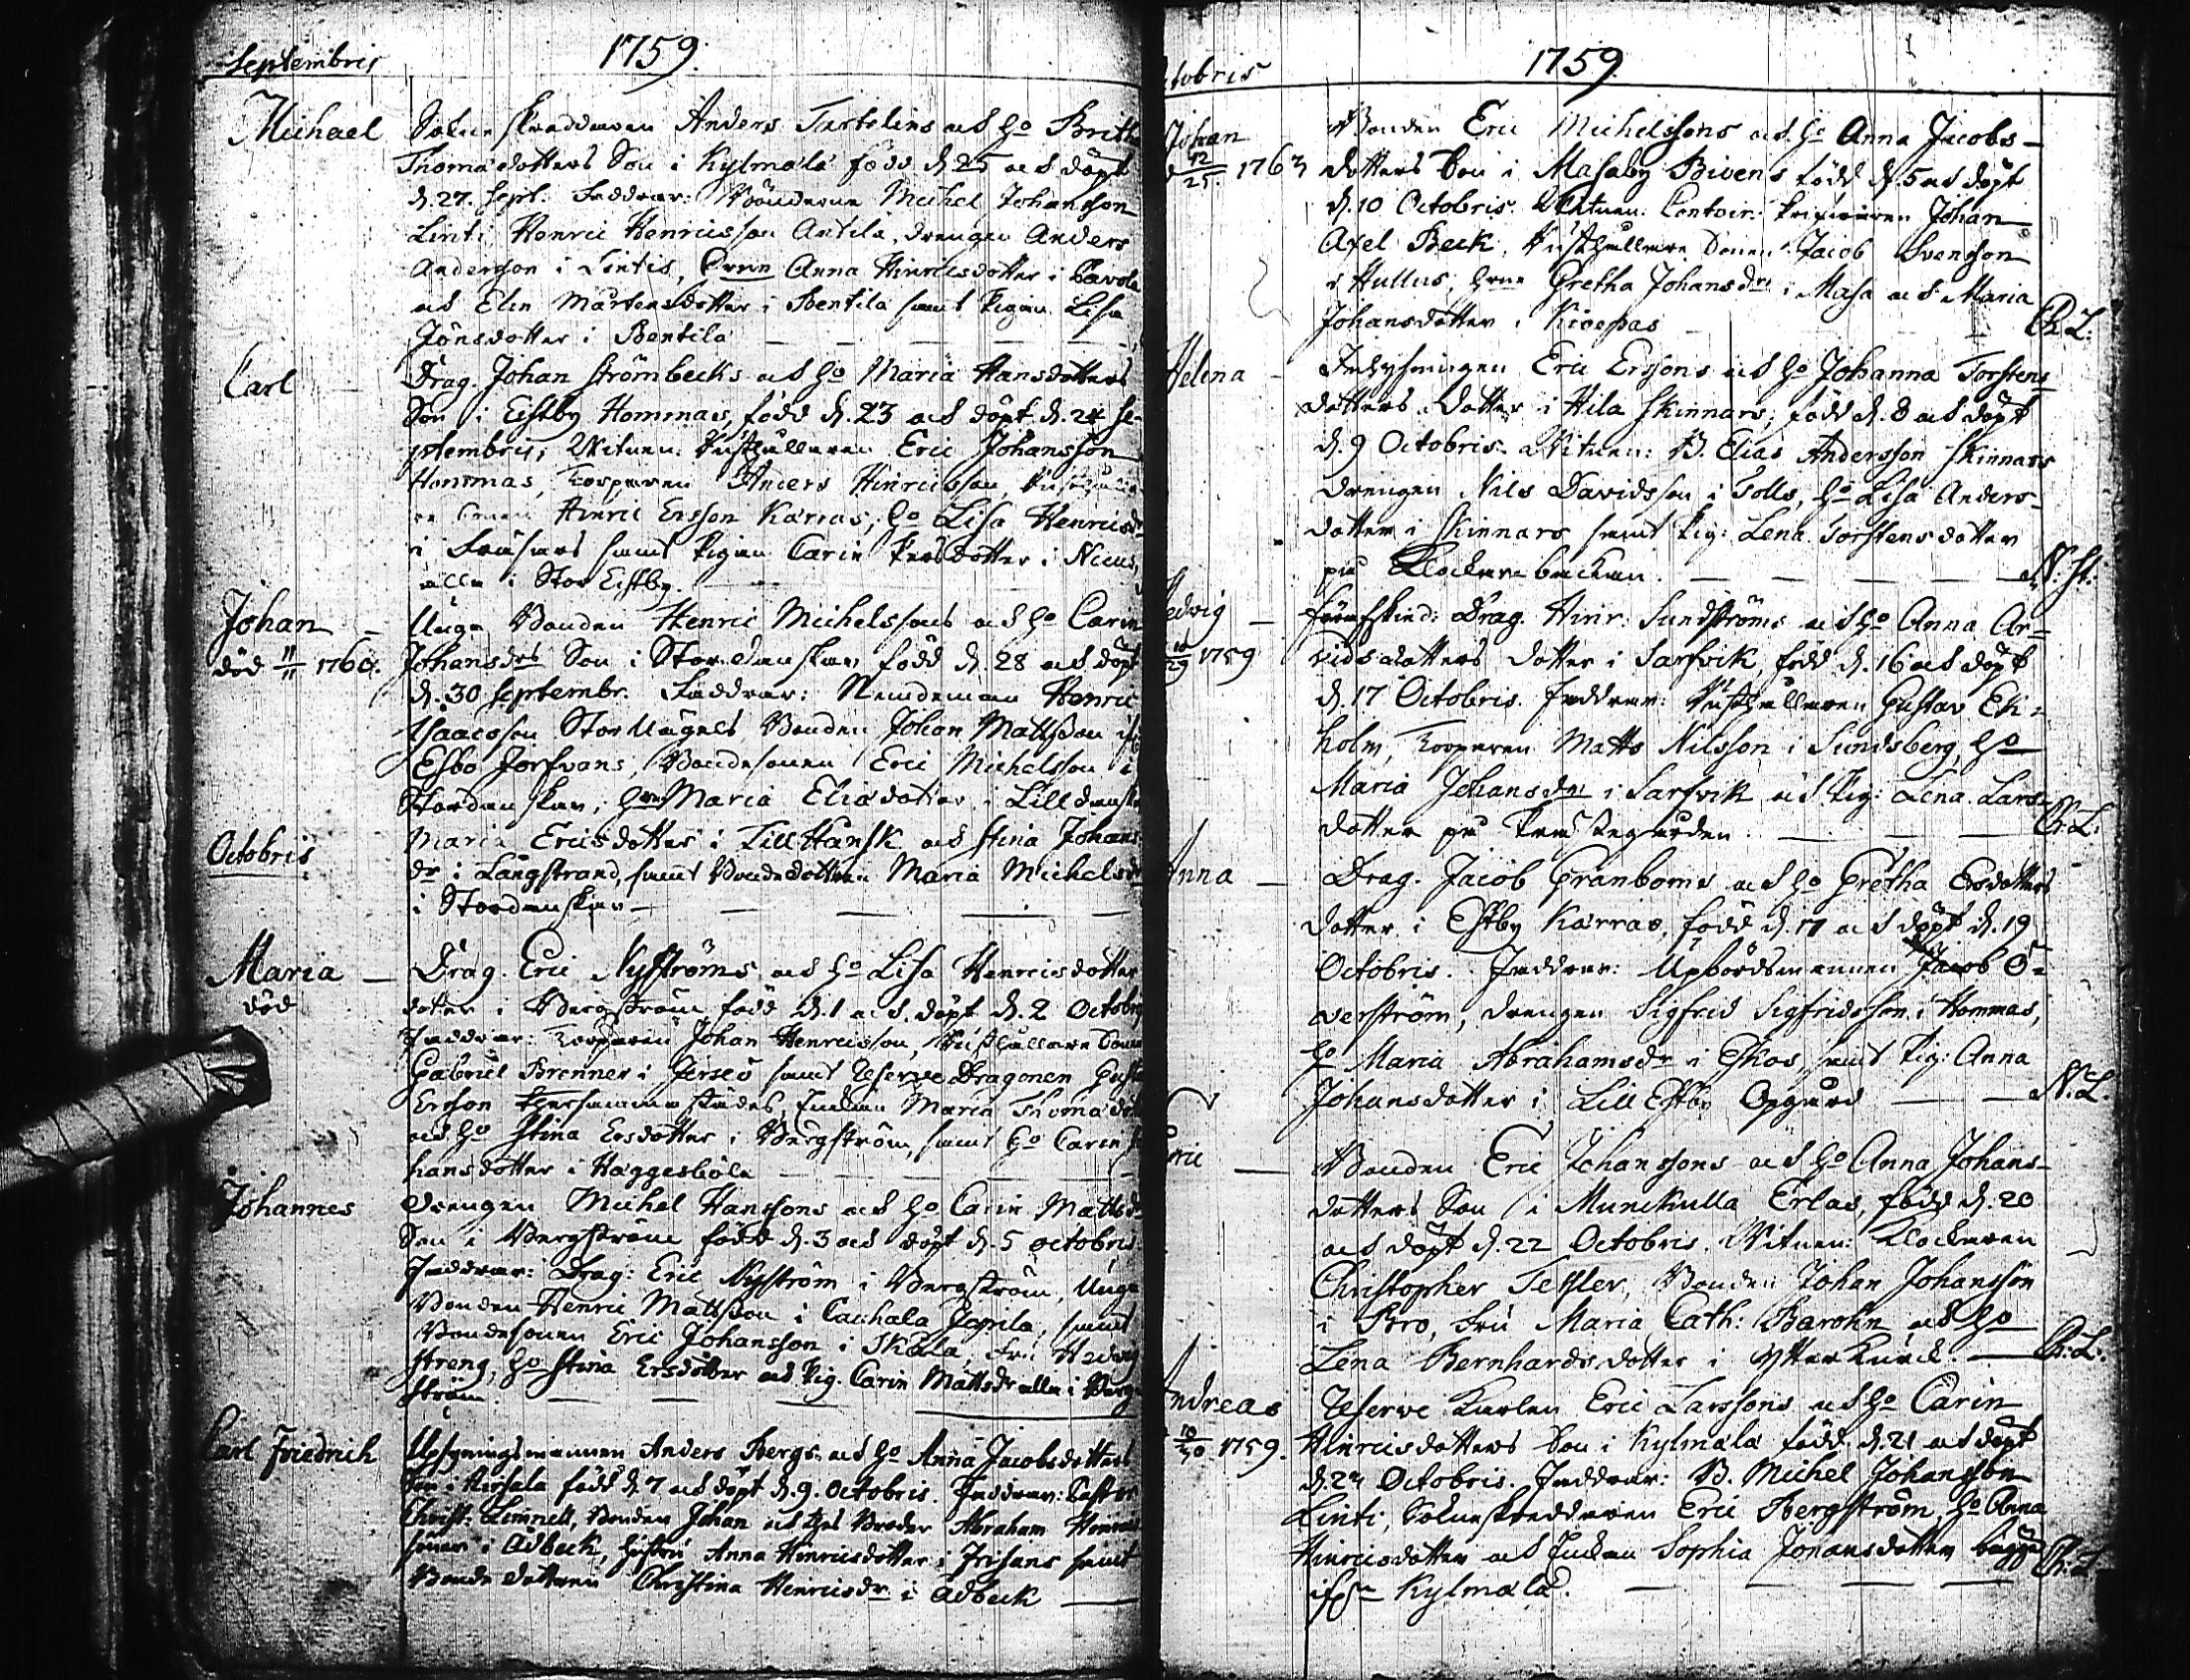 Septembris 1759.
Michael Sockne skraddaren Anders Tartelins och ho Brith
Thomædotters Son i Kylmälä född d. 25 och döpt
d. 27. Sept. Faddrar: Bönderne Michel Johansson
Linti, Henric Henricsson Antila, drengen Anders
Andersson i Lintis, Anna Hinricsdotter i
och Elin Mårtensdotter i Bentila samt Pigan Lisa
Jönsdotter i Bentilä
Carl
Drag. Johan Strömbecks och ho Maria Hansdotters
Son i Eistby Hommas, född d. 23 och döpt d. 24 Se-
ptembris; Witnen: Rusthållaren Eric Johansson
Hommas, Korparen Anders Hinricsson,
Hinric Ersson Karras, ho Lisa Henricsdr
i samt Pigan Carin Persdotter i
alla i Stor Eistby.
Johan
död 11/11 1760.
Unga Bonden Henric Michelssons och ho Carin
Johansdrs Son i Stordanskar född d. 28 och döpt
d. 30 Septembr. Faddrar: Nemdeman Henric
Isaacsson Stor Bonden Johan Mattsson
Esbo Bondesonen Eric Michelsson i
Stordanskar, Maria Eliædotter i Lilldansk
Maria Ericsdotter i Lill och Stina Johans
dr i Långstrand, samt Bondedottren Maria Michelsdr
i Stordanskar
Octobris.
Maria
död
Drag. Eric Nyströms och ho Lisa Henricsdotter
doter i Bergström född d. 1 och döpt d. 2 Octobr
Faddrar: Korparen Johan Henricsson, Rusthållare Sonen
Gabriel Brenner i samt Reserve Dragonen
Ersson därsammastädes, Enkan Maria Thomædr
och ho Stina Ersdotter i Bergström, samt ho Carin
hansdotter i Häggesböle
Johannes
Drengen Michel Hanssons och ho Carin Mattsdr
Son i Bergström född d. 3 och döpt d. 5 octobris
Faddrar: Drag: Eric Nyström i Bergström, Unga
Bonden Henric Mattsson i Cauhala samt
Bondesonen Eric Johansson i Skåla, Hedvig
Streng, ho Stina Ersdotter och Pig. Carin Mattsdr alla i Berg-
ström.
Carl Friedrich
Upsyningsmannen Anders Bergs och ho Anna Jacobsdotters
Son i född d. 7 och döpt d. 9. Octobris. Faddrar:
Christ: Limnell, Bonden Johan och Abraham
i Ådbeck, Anna Hinricsdotter i samt
Bonde dottren Christina Hinricsdr i Ådbeck
ctobris 1759.
Johan
12/25. 1763
Bonden Eric Michelssons och ho Anna Jacobs-
dotters Son i Masaby Bivens född d. 5 och döpt
d. 10 Octobris. Witnen: Contoir: Johan
Axel Beck, Rusthållare Sonen Jacob Svensson
i Hullus, Gretha Johansdr i Masa och Maria
Johansdotter i Ch: L:
Helena
Eric Erssons och ho Johanna Torstens
dotters Dotter i Hila Skinnars, född d. 8 och döpt
d. 9 Octobris. Witnen: B. Elias Andersson Skinnars
Drengen Nils Davidsson i Tolls, ho Lisa Anders-
dotter i Skinnars samt Pig: Lena Torstensdotter
på Klockarebacken.
edvig
10/29 1759
Drag. Hinr. Sundströms och ho Anna Ar-
vidsdotters dotter i Sarfvik, född d. 16 och döpt
d. 17 Octobris. Faddrar: Rusthållaren Gustav Ek-
holm, Korparen Matts Nilsson i Sundsberg, ho
Maria Johansdr i Sarfvik och Pig: Lena Lars-
dotter på Prestegården. Ch: L:
Anna
Drag. Jacob Granboms och ho Gretha Ersdotters
dotter i Estby Karras, född d. 17 och döpt d. 19
Octobris. Faddrar: Upbördsmannen Jacob Ö-
werström, drengen Sigfred Sigfridsson i Hommas,
ho Maria Abrahamsdr i Eskos, samt Pig: Anna
Johansdotter i Lill Estby Opgård N: L.
Eric
Bonden Eric Johanssons och ho Anna Johans-
dotters Son i Munckulla Erlas, född d. 20
och döpt d. 22 Octobris. Witnen: Klockaren
Christopher Tessler, Bonden Johan Johansson
i Bro, Fru Maria Cath: Barohn och ho
Lena Bernhardsdotter i Ytter Kurck. Ch: L:
Andreas
10/30 1759.
Reserve Karlen Eric Larssons och ho Carin
Hinricsdotters Son i Kylmälä född d. 21 och döpt
d. 24 Octobris. Faddrar: B. Michel Johansson
Linti, Sockneskreddaren Eric Bergström, ho Anna
Hinricsdotter och Enkan Sophia Johansdotter bägge
ifrn Kylmälä. Ch: L